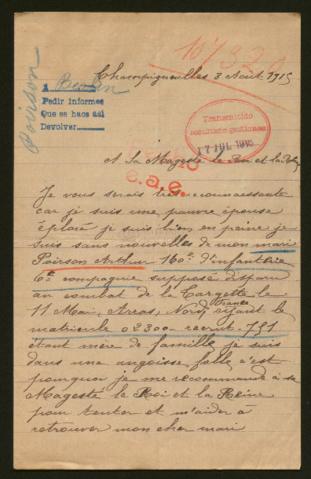 107320
Champigneulles 3 Août 1915
Poirson
A Berlin
Pedir informes
Que se hace así
Devolver
Transmitido
resultado gestiones
17 JUL 1915
A Sa Magesté le Roi et la Reine
e.a.e.
Je vous serais très reconnaissante
car je suis une pauvre épouse
éploré je suis bien en peine je
suis sans nouvelles de mon mari
Poirson Arthur 160e d'infanterie
6e compagnie supposée disparu
au combat de la Targette le
11 Mai, Arras, Nord, France ayant le
matricule 03300 - recrut. 791
étant mère de famille je suis
dans une angoisse folle c'est
pourquoi je me recommande à sa
Magesté le Roi et la Reine
pour tenter et m'aider à
retrouver mon cher mari